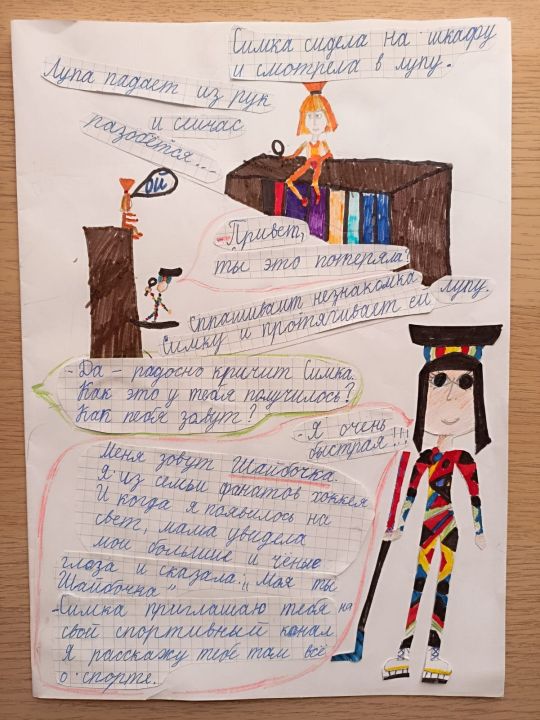 Симка сидела на шкафу
и смотрела в лупу.
Лупа падает из рук
и сичас
разобётся...
ОЙ
- Привет,
ты это потеряла?
спрашивает незнакомка
Симку и протягивает ей лупу.
- Да - радосно кричит Симка.
Как это у тебя получилось?
Как тебя завут?
- Я очень
быстрая!!!
Меня зовут Шайбочка.
Я из семьи фанатов хоккея
И когда я появилось на
свет, мама увидела
мои большие и чёные
глоза и сказала: "Моя ты
Шайбочка"
- Симка приглашаю тебя на
свой спортивный канал
Я расскажу тебе там всё
о спорте.